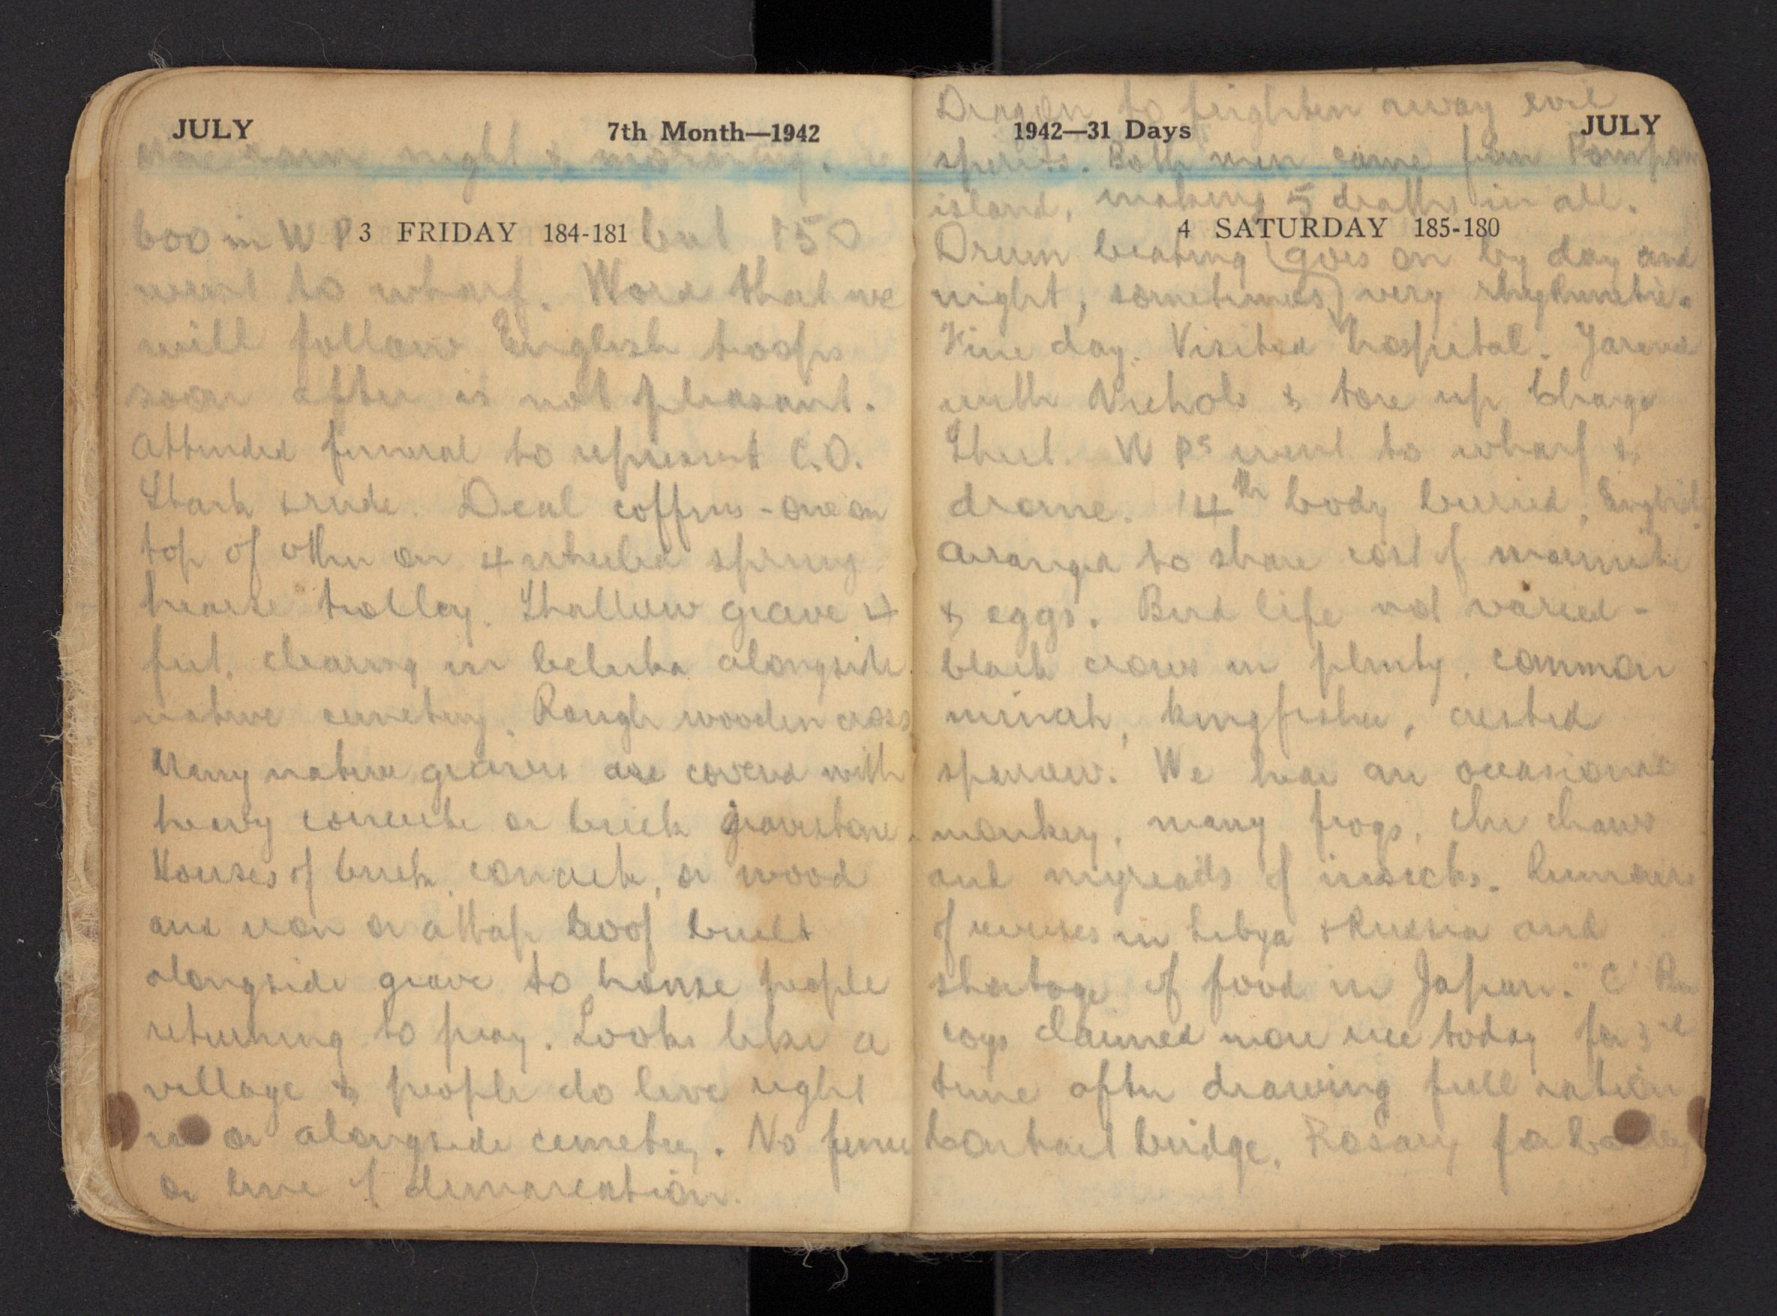 JULY 7th Month—1942
rain night & morning.
600 in W P 3 FRIDAY 184-181 but 150
went to wharf. Word that we
will follow English troops
soon after is not pleasant.
Attended funeral to represent C.O.
Stark crude. Deal coffins - one on
top of other on 4 wheeled spring
hearse trolley. Shallow grave 4
feet, clearing in belukа alongside
native cemetery. Rough wooden cross
Many native graves are covered with
heavy concrete or brick gravestone.
Houses of brick, concrete, or wood
and iron or attap roof built
alongside grave to house people
returning to pray. Looks like a
village & people do live right
in or alongside cemetery. No fence
or line of demarcation.
Dragon to frighten away evil
1942—31 Days JULY
spirits. Both men came from
island, making 5 deaths in all.
4 SATURDAY 185-180
Drum beating (goes on by day and
night, sometimes) very rhythmetic.
Fine day. Visited hospital. Yarned
with Nichols & tore up Charge
Sheet. W Ps went to wharf &
drome. 14th body buried, English.
Arranged to share cost of marmite
& eggs. Bird life not varied -
black crows in plenty, common
minah, kingfisher, crested
sparrow. We hear an occasional
monkey, many frogs, chi chaws
and myreads of insects. Rumours
of reverses in Libya & Russia and
shortage of food in Japan. "C"
coys claimed more rice today for 3rd
time after drawing full ration
Contract bridge. Rosary for